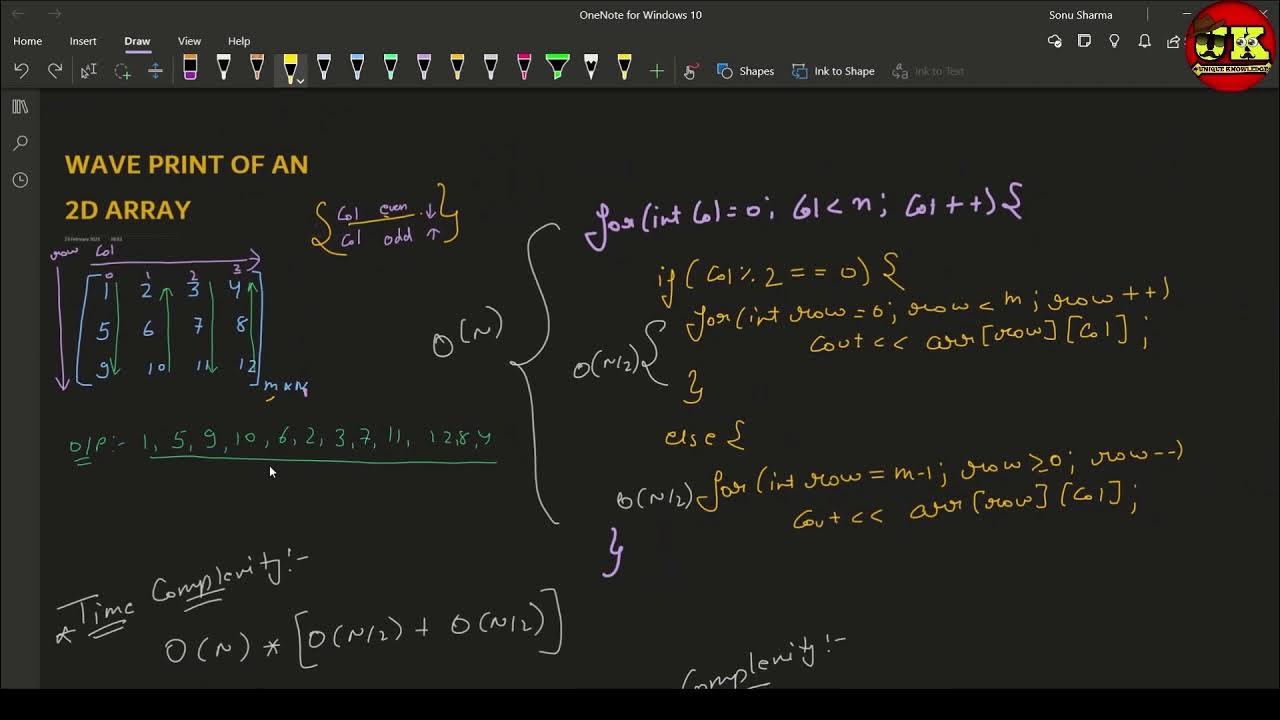 OneNote for Windows 10
Sonu Sharma
Home Insert Draw View Help
Shapes Ink to Shape Ink to Text
UK
UNIQUE KNOWLEDGE
WAVE PRINT OF AN
2D ARRAY
{ Col even ↓ }
Col odd ↑
row Col
0 1 2 3
1 2 3 4
5 6 7 8
9 10 11 12
m x n
O/P:- 1, 5, 9, 10, 6, 2, 3, 7, 11, 12, 8, 4
O(N)
for(int Col=0; Col<n; Col++){
if(Col%2==0){
for(int row=0; row<m; row++)
Cout<< arr[row][Col];
O(N/2)
}
else{
O(N/2) for(int row=m-1; row≥0; row--)
Cout<< arr[row][Col];
}
* Time Complexity:-
O(N) * [O(N/2) + O(N/2)]
Complexity:-